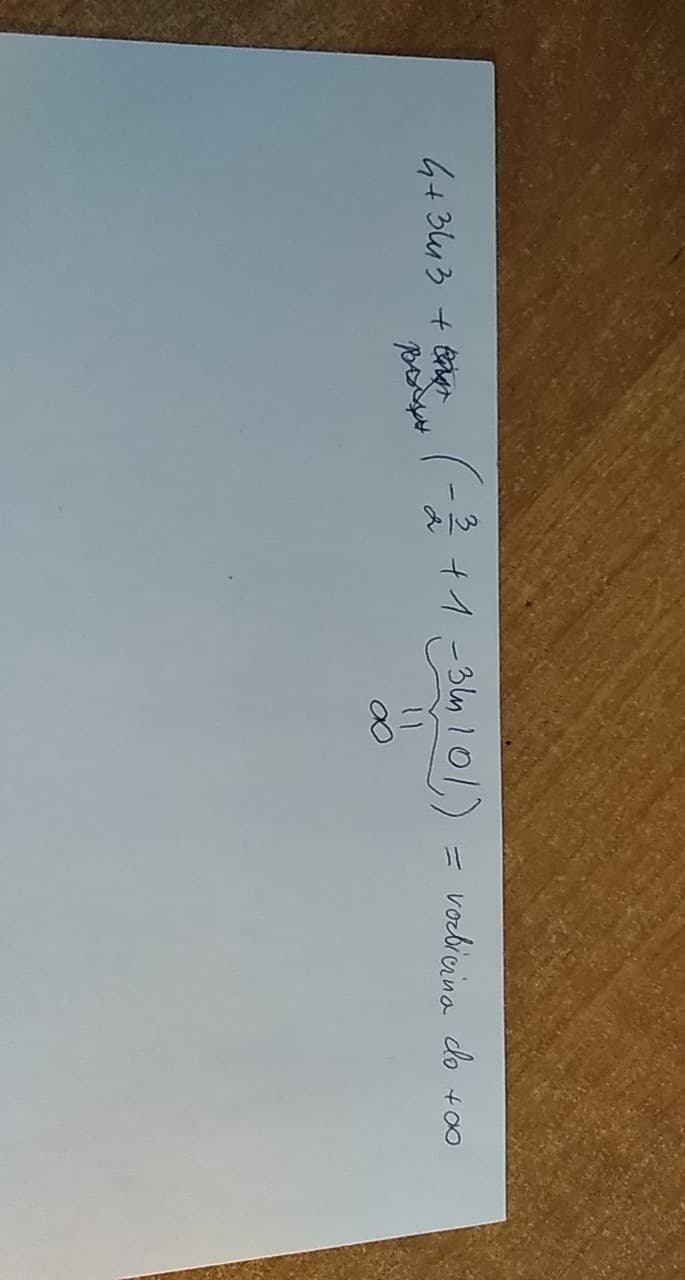 4+3ln3 + (-3/2 + 1 -3ln|0|) = rozbieżna do +∞
||
∞